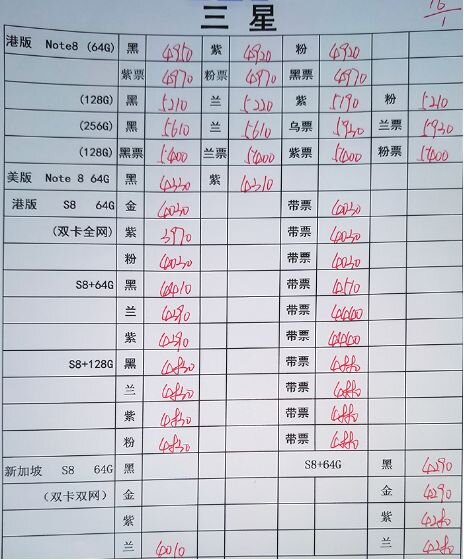 三星
16/1
港版 Note8 (64G) 黑 4950 紫 4920 粉 4920
紫票 4970 粉票 4970 黑票 4970
(128G) 黑 5210 兰 5220 紫 5190 粉 5210
(256G) 黑 5610 兰 5610 乌票 5930 兰票 5930
(128G) 黑票 5400 兰票 5400 紫票 5400 粉票 5400
美版 Note 8 64G 黑 4330 紫 4310
港版 S8 64G 金 4030 带票 4030
(双卡全网) 紫 3970 带票 4030
粉 4030 带票 4030
S8+64G 黑 4410 带票 4510
兰 4290 带票 4400
紫 4290 带票 4400
S8+128G 黑 4830 带票
兰 4830 带票
紫 4830 带票
粉 4830 带票
新加坡 S8 64G 黑 S8+64G 黑 4290
(双卡双网) 金 金 4290
紫 紫 4280
兰 4010 兰 4280